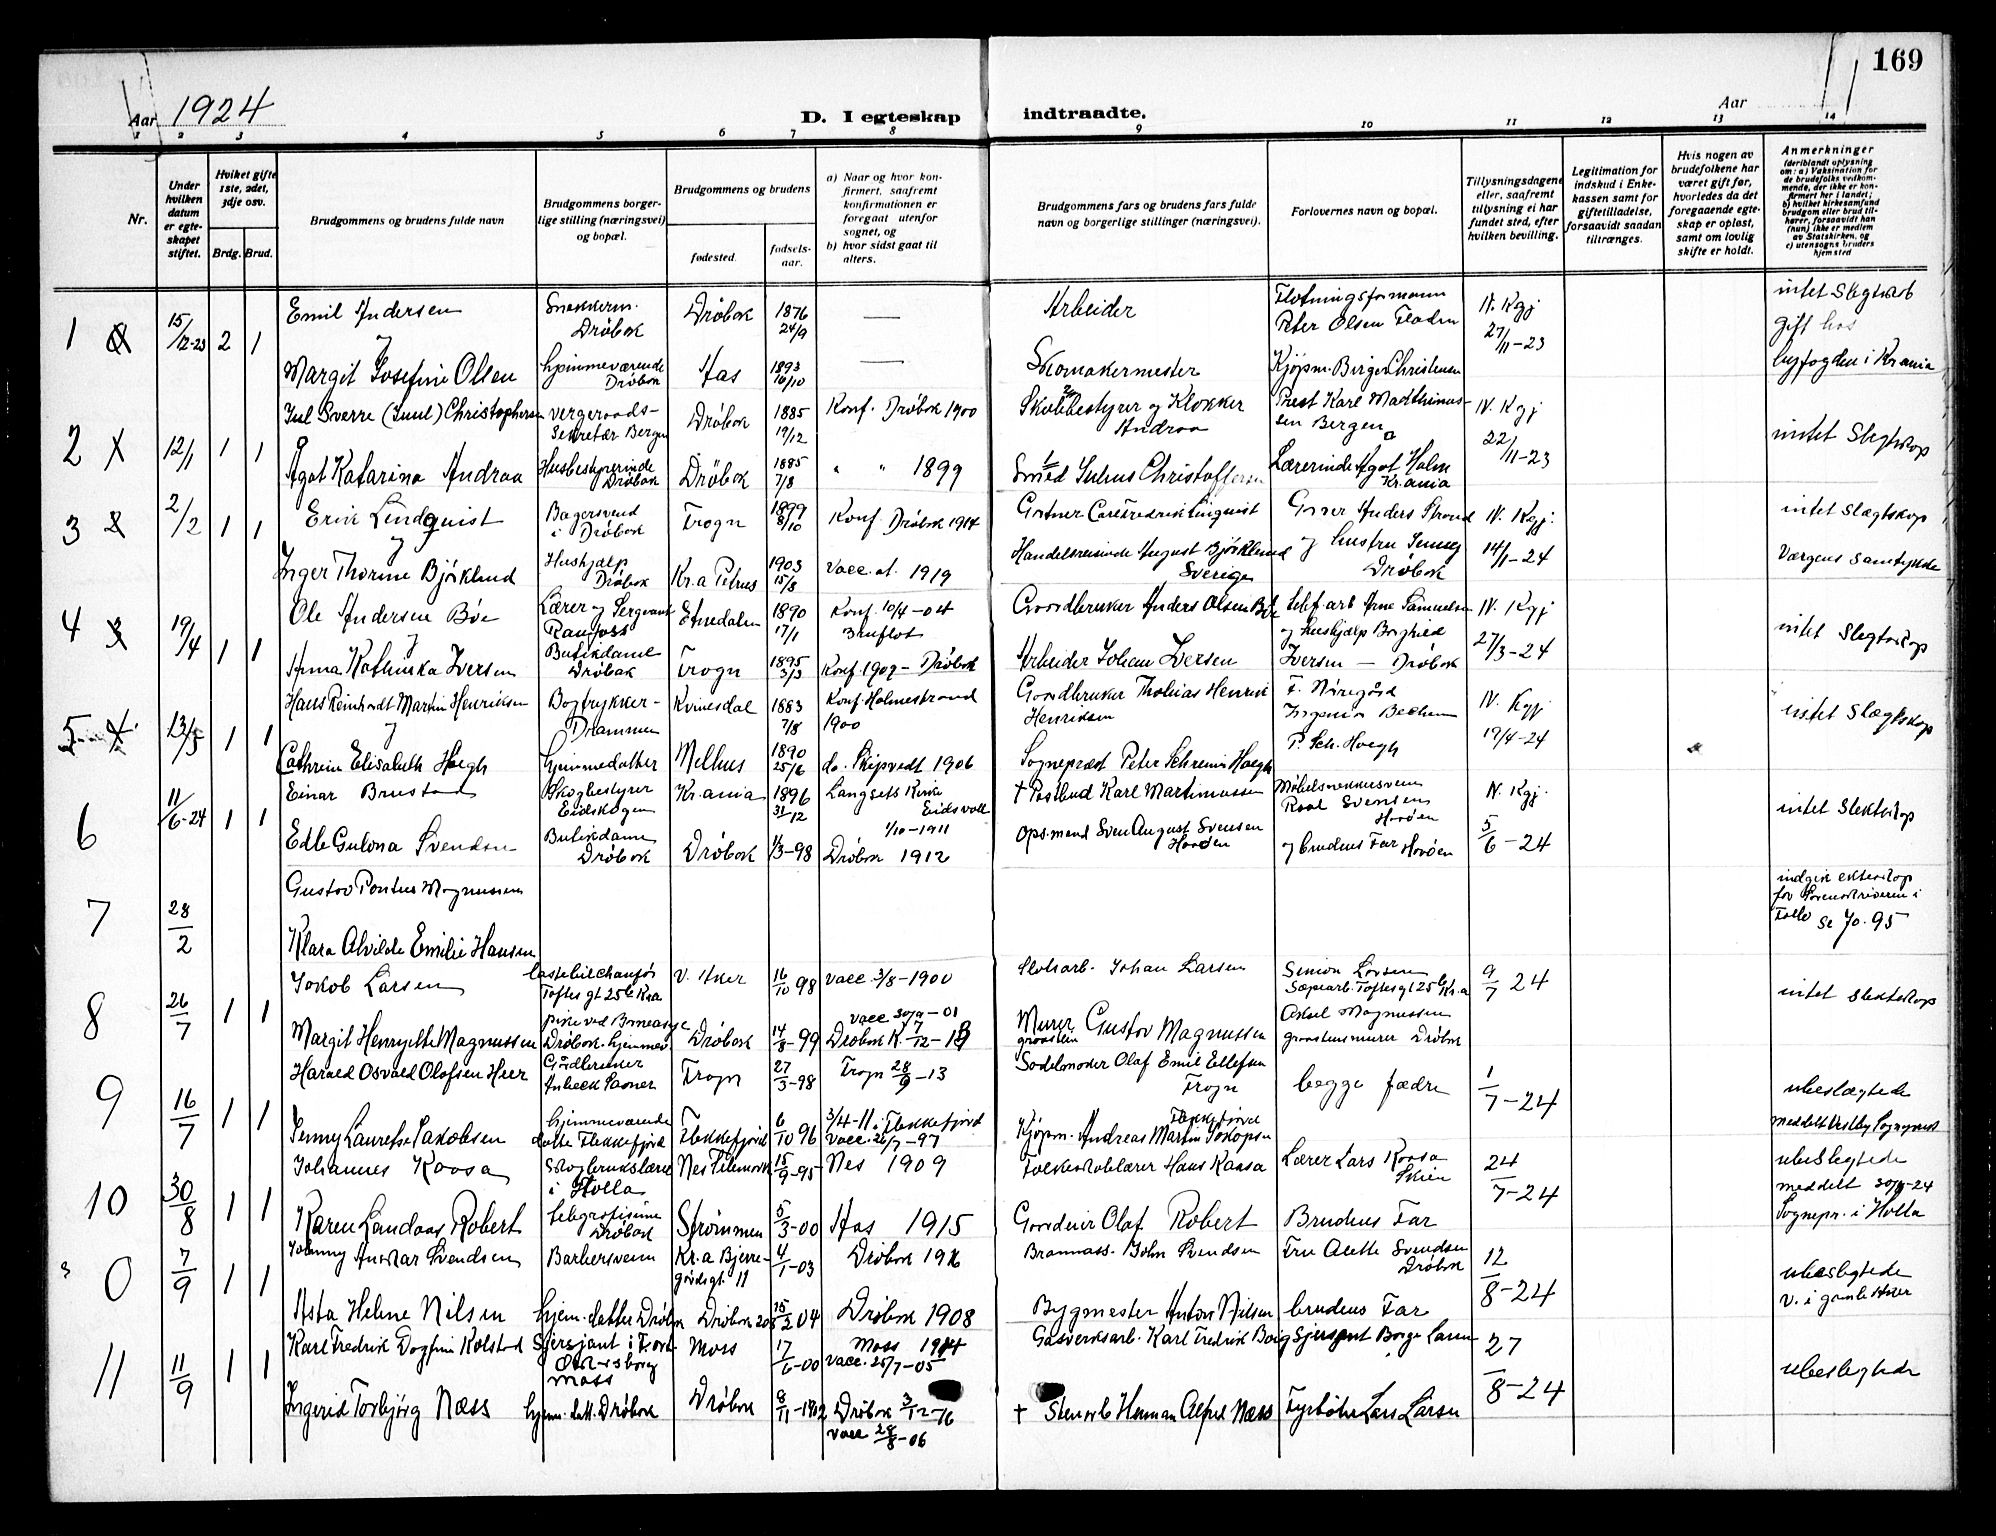 169
Aar 1924
D. I egteskap indtraadte.
Aar
1 2 3 4 5 6 7 8 9 10 11 12 13 14
Nr.
Under hvilken datum er egteskapet stiftet.
Hvilket gifte 1ste, 2det, 3dje osv.
Brdg. Brud.
Brudgommens og brudens fulde navn
Brudgommens borgerlige stilling (næringsvei) og bopæl.
Brudgommens og brudens
fødested.
fødselsaar.
a) Naar og hvor konfirmert, saafremt konfirmationen er foregaat utenfor sognet, og
b) hvor sidst gaat til alters.
Brudgommens fars og brudens fars fulde navn og borgerlige stillinger (næringsvei).
Forlovernes navn og bopæl.
Tillysningsdagene eller, saafremt tillysning ei har fundet sted, efter hvilken bevilling.
Legitimation for indskud i Enkekassen samt for giftetilladelse, forsaavidt saadan tiltrænges.
Hvis nogen av brudefolkene har været gift før, hvorledes da det foregaaende egteskap er opløst, samt om lovlig skifte er holdt.
Anmerkninger
(deriblandt oplysning om: a) Vaksination for de brudefolks vedkommende, der ikke er konfirmert her i landet; b) hvilket kirkesamfund brudgom eller brud tilhører, forsaavidt han (hun) ikke er medlem av Statskirken, og c) utensogns bruders hjemsted
1 15/12-23 2 1
Emil Andersen
og
Drøbak 1876 24/9 —
Arbeider
Peter Olsen
N. Kgj 27/11-23
intet Slegtskab
gift hos
byfogden i Kr.ania
Margit Josefine Olsen
hjemmeværende Drøbak
Aas 1893 10/10 —
Skomakermester
Kjøpm. Birger Christensen
2 12/1 1 1
Jul Sverre (Juul) Christophersen
Sekretær Bergen
Drøbak 1885 19/12
Konf. Drøbak 1900
Skolebestyrer og Klokker Andraa
Prest Karl Marthinussen Bergen
N. Kgj 22/11-23
intet Slegtskap
Agot Katarina Andraa
Husbestyrerinde Drøbak
Drøbak 1885 7/8
" " 1899
Smed Julius Christoffersen
Lærerinde Agot Holm Kr.ania
3 2/2 1 1
Erik Lindquist
og
Bagersvend i Drøbak
Frogn 1899 8/10
Konf. Drøbak 1914
Gartner Carl Fredrik Linquist
Anders Strand
og hustru Jenny Drøbak
N. Kgj. 14/1-24
intet Slægtskap
Værgens Samtykke
Inger Thorine Bjørklund
Hushjælp Drøbak
Kr.a Petrus 1903 15/8
Vacc. at. 1919
Handelsreisende August Bjørklund Sverige
4 19/4 1 1
Ole Andersen Bøe
og
Lærer og Sergeant Raufoss
Etnedalen 1890 17/1
Konf. 10/4-04 Bruflot
Gaardbruker Anders Olsen Bøe
Arne Samuelsen
og hushjælp Borghild Iversen — Drøbak
N. Kgj 27/3-24
intet Slegtskap
Anna Kathinka Iversen
Butikdame Drøbak
Frogn 1895 3/3
Konf. 1909 - Drøbak
Arbeider Johan Iversen
5 13/5 1 1
Hans Reinhardt Martin Henriksen
og
Bogtrykker - Drammen
Kvinesdal 1883 7/8
Konf. Holmestrand 1900
Gaardbruker Thobias Henrik Henriksen
F. Nøregård
N. Kgj 19/4-24
intet Slægtskap
Cathrein Elisabeth Høegh
hjemmedatter
Melhus 1890 25/6
do. Skipvedt 1906
Sogneprest Peter Schreiner Høegh
P. Sch. Høegh
6 11/6-24 1 1
Einar Brustad
Skogbestyrer Eidskogen
Kr.ania 1896 31/12
Langsets Kirke Eidsvoll 1/10-1911
† Postbud Karl Martinussen
N. Kgj. 5/6-24
intet Slektskap
Edle Gulona Svendsen
Butikdame Drøbak
Drøbak 1/3-98
Drøbak 1912
Ops.mand Sven August Svensen Haaøen
og brudens Far Haaøen
7 28/2
Gustav Pontus Magnussen
indgik ekteskap
for Sorenskriveren i
Follo Se Jo. 95
Klara Alvilde Emilie Hansen
8 26/7 1 1
Jakob Larsen
Lastebilchauffør Toftes gt 25 b Kr.a
V. Aker 16/10 98
Vacc 3/8-1900
Johan Larsen
Simon Larsen
Sæpearb. Toftesgt 25 b Kr.a
9/7 24
intet Slektskap
Margit Henriette Magnussen
Drøbak. hjemmev.
Drøbak 14/8-99
Vacc 30/9-01
Drøbak K. 7/12-13
Murer Gustav Magnussen
Aksel Magnussen
graastensmurer Drøbak
9 16/7 1 1
Harald Osvald Olafsen Heer
Gårdbruker
Frogn 27/3-98
Frogn 28/9-13
Sadelmaker Olaf Emil Ellefsen Frogn
begge fædre
1/7-24
ubeslægtede
meddelt Vestby Sogneprest
Jenny Laurelse Jakobsen
hjemmeværende datter Flekkefjord
Flekkefjord 6/10 96
3/4-11 i Flekkefjord
Vacc. 26/7-97
Kjøpm. Andreas Martin Jakopsen Flekkefjord
10 30/8 1 1
Johannes Kaasa
Skogbrukslærer i Holla
Nes Telemark 15/9-95
Nes 1909
Folkeskolelærer Hans Kaasa
Lærer Lars Kaasa Skien
24/7-24
ubeslegtede
meddelt 30/8-24
Sognepr. i Holla
Karen Landaas Robert
telegrafistinne Drøbak
Strømmen 5/3-00
Aas 1915
Olaf Robert
Brudens Far
0 7/9 1 1
Johnny Anskar Svendsen
Barbersvenn
Kr.a Bjerregårdsgt. 11 4/1-03
Drøbak 1916
John Svendsen
Fru Alette Svendsen Drøbak
12/8-24
ubeslegtede
V. i gamle Aker
Asta Helene Nilsen
hjem. datter Drøbak
Drøbak 15/2 04
Drøbak 1908
Bygmester Anton Nilsen
brudens Far
11 11/9 1 1
Karl Fredrik Dagfinn Kolstad
Sjersjant i Fort Oskarsborg Moss
Moss 17/6-00
Moss 1914
Vacc. 25/7-05
Gasverksarb. Karl Fredrik Borg
Sjersjant Borge Larsen
27/8-24
ubeslegtede
Ingerid Torbjørg Næss
hjem. datt. Drøbak
Drøbak 8/11-1902
Drøbak 3/12-16
Vacc 28/8-06
† Stenarb Herman Alfred Næss
Fyrbøter Lars Larsen